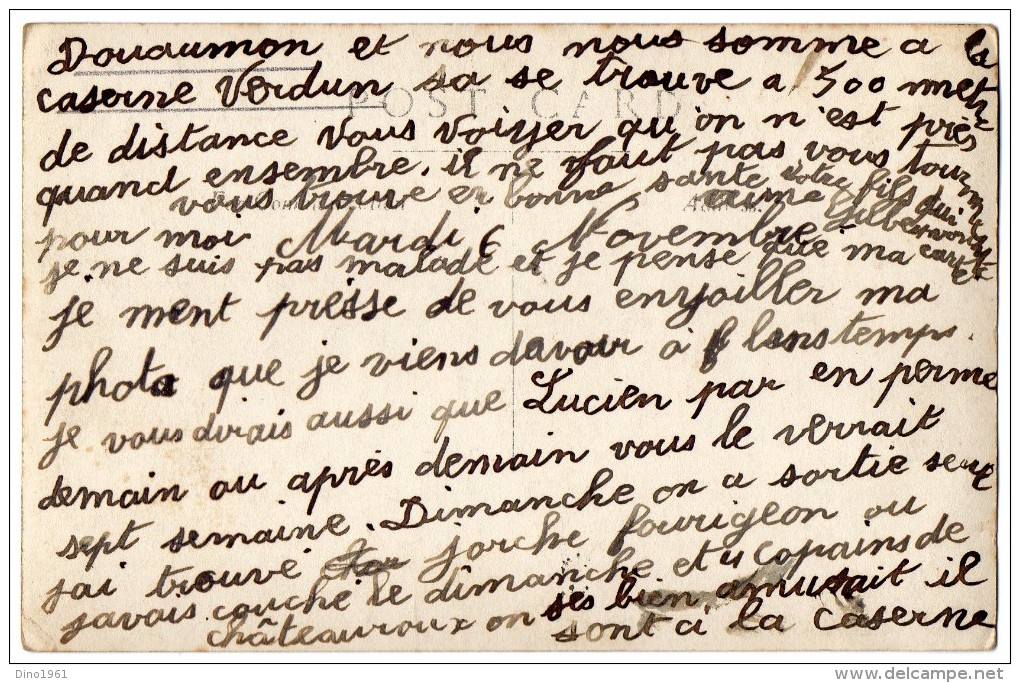 Douaumon et nous nous somme a la
caserne Verdun sa se trouve a 500 metre
POST CARD
de distance vous voiyer qu'on n'est près
quand ensembre. il ne faut pas vous tourmente
vous trouve en bonne sante votre fils qui
aime Gilbert
pour moi Mardi 6 Novembre
je ne suis pas malade et je pense que ma carte
je ment presse de vous envoiller ma
photo que je viens davoir a lonstemps.
je vous dirais aussi que Lucien par en perme
demain ou après demain vous le verrait
sept semaine. Dimanche on a sortie seux
jai trouve jorche fourigeon ou
javais couche le dîmanche et 4 copains de
châteauroux on ses bien amusait il
sont a la caserne
Dino1961
delcampe.net